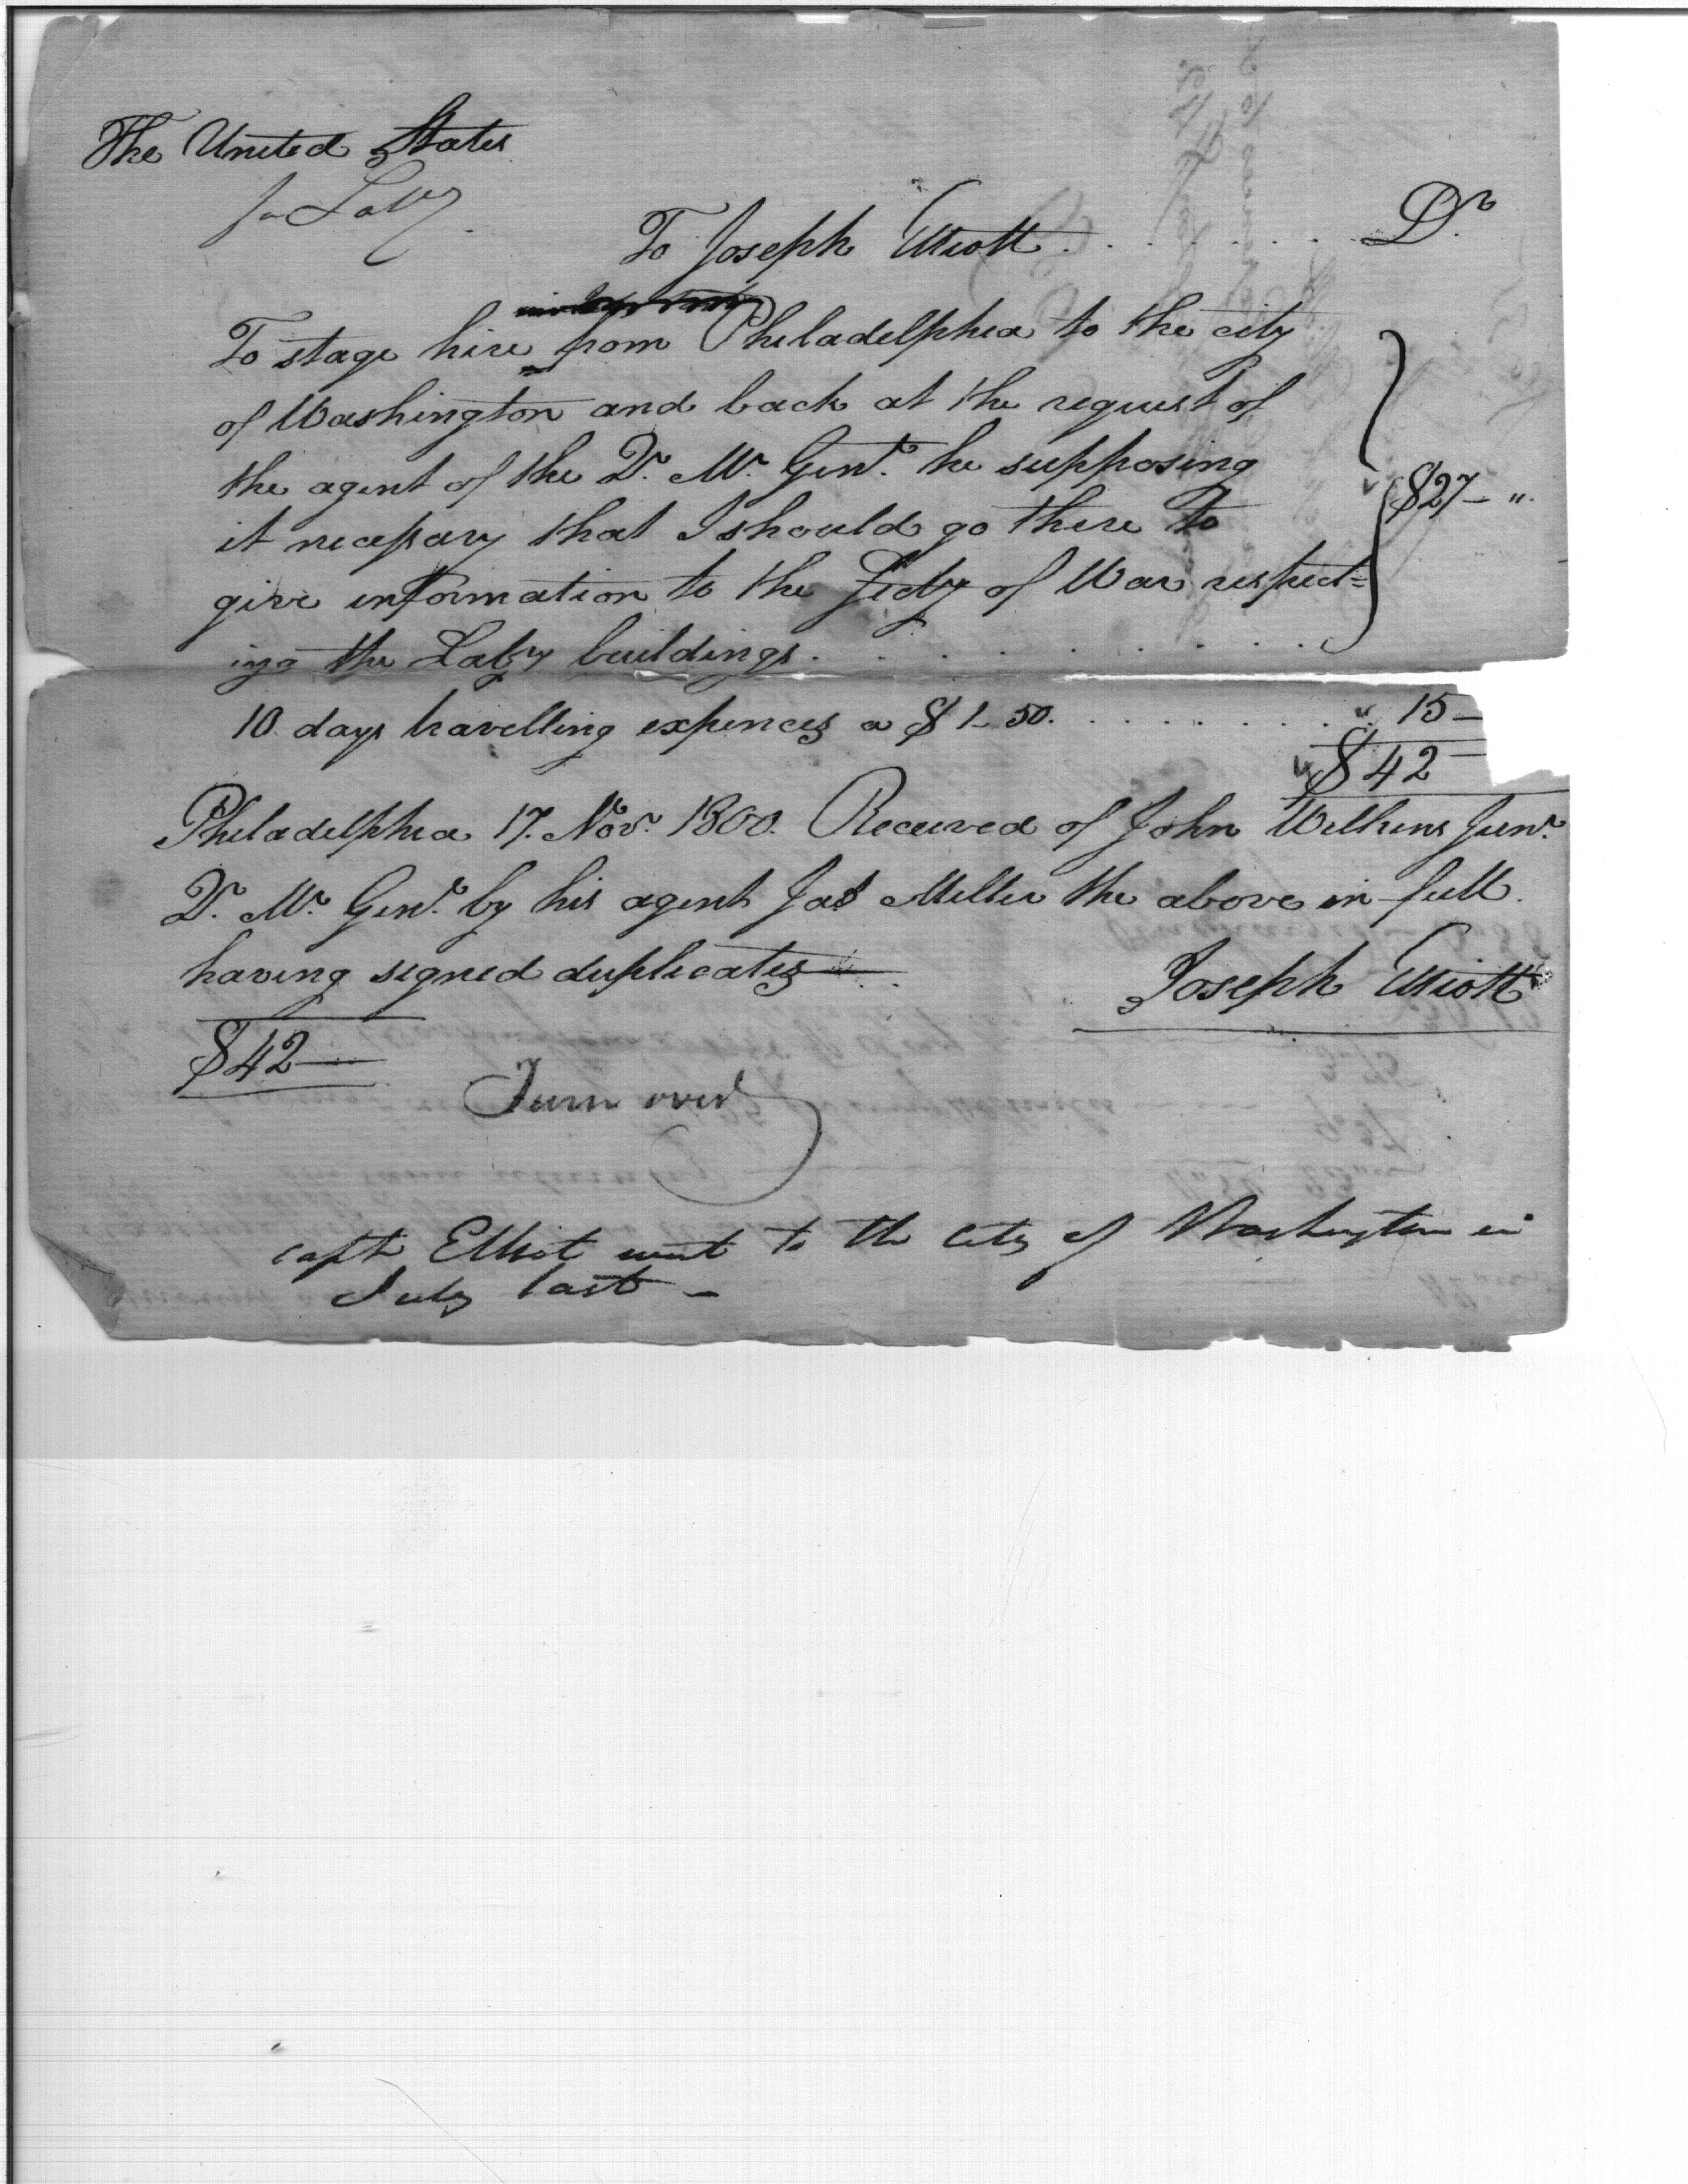 The United States
for Laby
To Joseph Elliott . . . . . . . Dr.
To stage hire from Philadelphia to the city
of Washington and back at the request of
the agent of the Q. Mr. Genl. he supposing
it necessary that I should go there to
give information to the Secty of War respect=
ing the Laby buildings . . . . . . . . $27 — "
10 days travelling expences a $ 1–50. . . . . . . . . 15 —
$42 —
Philadelphia 17. Novr. 1800. Received of John Wilkins Junr.
Q. Mr. Genl. by his agent Jas Miller the above in full.
having signed duplicates —
Joseph Elliott
$42 —
Turn over
capt Elliot went to the City of Washington in
July last —